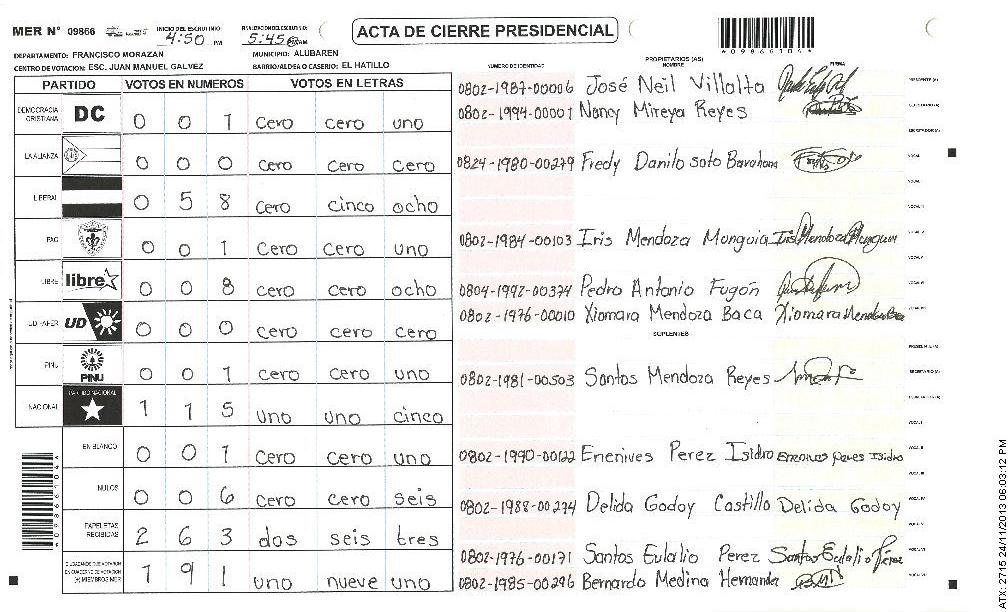 MER N° 09866 INICIO DEL ESCRUTINIO 4:50 PM FINALIZACION DEL ESCRUTINIO: 5:45 AM
ACTA DE CIERRE PRESIDENCIAL
A09866104A
DEPARTAMENTO: FRANCISCO MORAZAN MUNICIPIO: ALUBAREN
CENTRO DE VOTACION: ESC. JUAN MANUEL GALVEZ BARRIO/ALDEA O CASERIO: EL HATILLO
PARTIDO VOTOS EN NUMEROS VOTOS EN LETRAS
DEMOCRACIA CRISTIANA DC 0 0 1 cero cero uno
LA ALIANZA 0 0 0 cero cero cero
LIBERAL 0 5 8 cero cinco ocho
PAC 0 0 1 cero cero uno
LIBRE libre 0 0 8 cero cero ocho
UD FAPER UD 0 0 0 cero cero cero
PINU PINU 0 0 1 cero cero uno
NACIONAL PARTIDO NACIONAL 1 1 5 uno uno cinco
EN BLANCO 0 0 1 cero cero uno
NULOS 0 0 6 cero cero seis
PAPELETAS RECIBIDAS 2 6 3 dos seis tres
CIUDADANOS QUE VOTARON EN CUADERNO DE VOTACION (+) MIEMBROS MER 1 9 1 uno nueve uno
NUMERO DE IDENTIDAD PROPIETARIOS (AS) NOMBRE FIRMA
0802-1987-00006 José Neil Villalta PRESIDENTE (A)
0802-1994-00001 Nancy Mireya Reyes SECRETARIO (A)
ESCRUTADOR (A)
0824-1980-00279 Fredy Danilo soto Barahona VOCAL I
0802-1984-00103 Iris Mendoza Munguia Iris Mendoza Munguia
0804-1992-00374 Pedro Antonio Fugón
0802-1976-00010 Xiomara Mendoza Baca Xiomara Mendoza Baca
SUPLENTES
PRESIDENTE (A)
0802-1981-00503 Santos Mendoza Reyes SECRETARIO (A)
ESCRUTADOR (A)
0802-1990-00122 Enenives Perez Isidro Enenives Perez Isidro
0802-1988-00274 Delida Godoy Castillo Delida Godoy
0802-1976-00171 Santos Eulalio Perez Santos Eulalio Pérez
0802-1985-00296 Bernardo Medina Hernanda
ATX- 2715 24/11/2013 06:03:12 PM